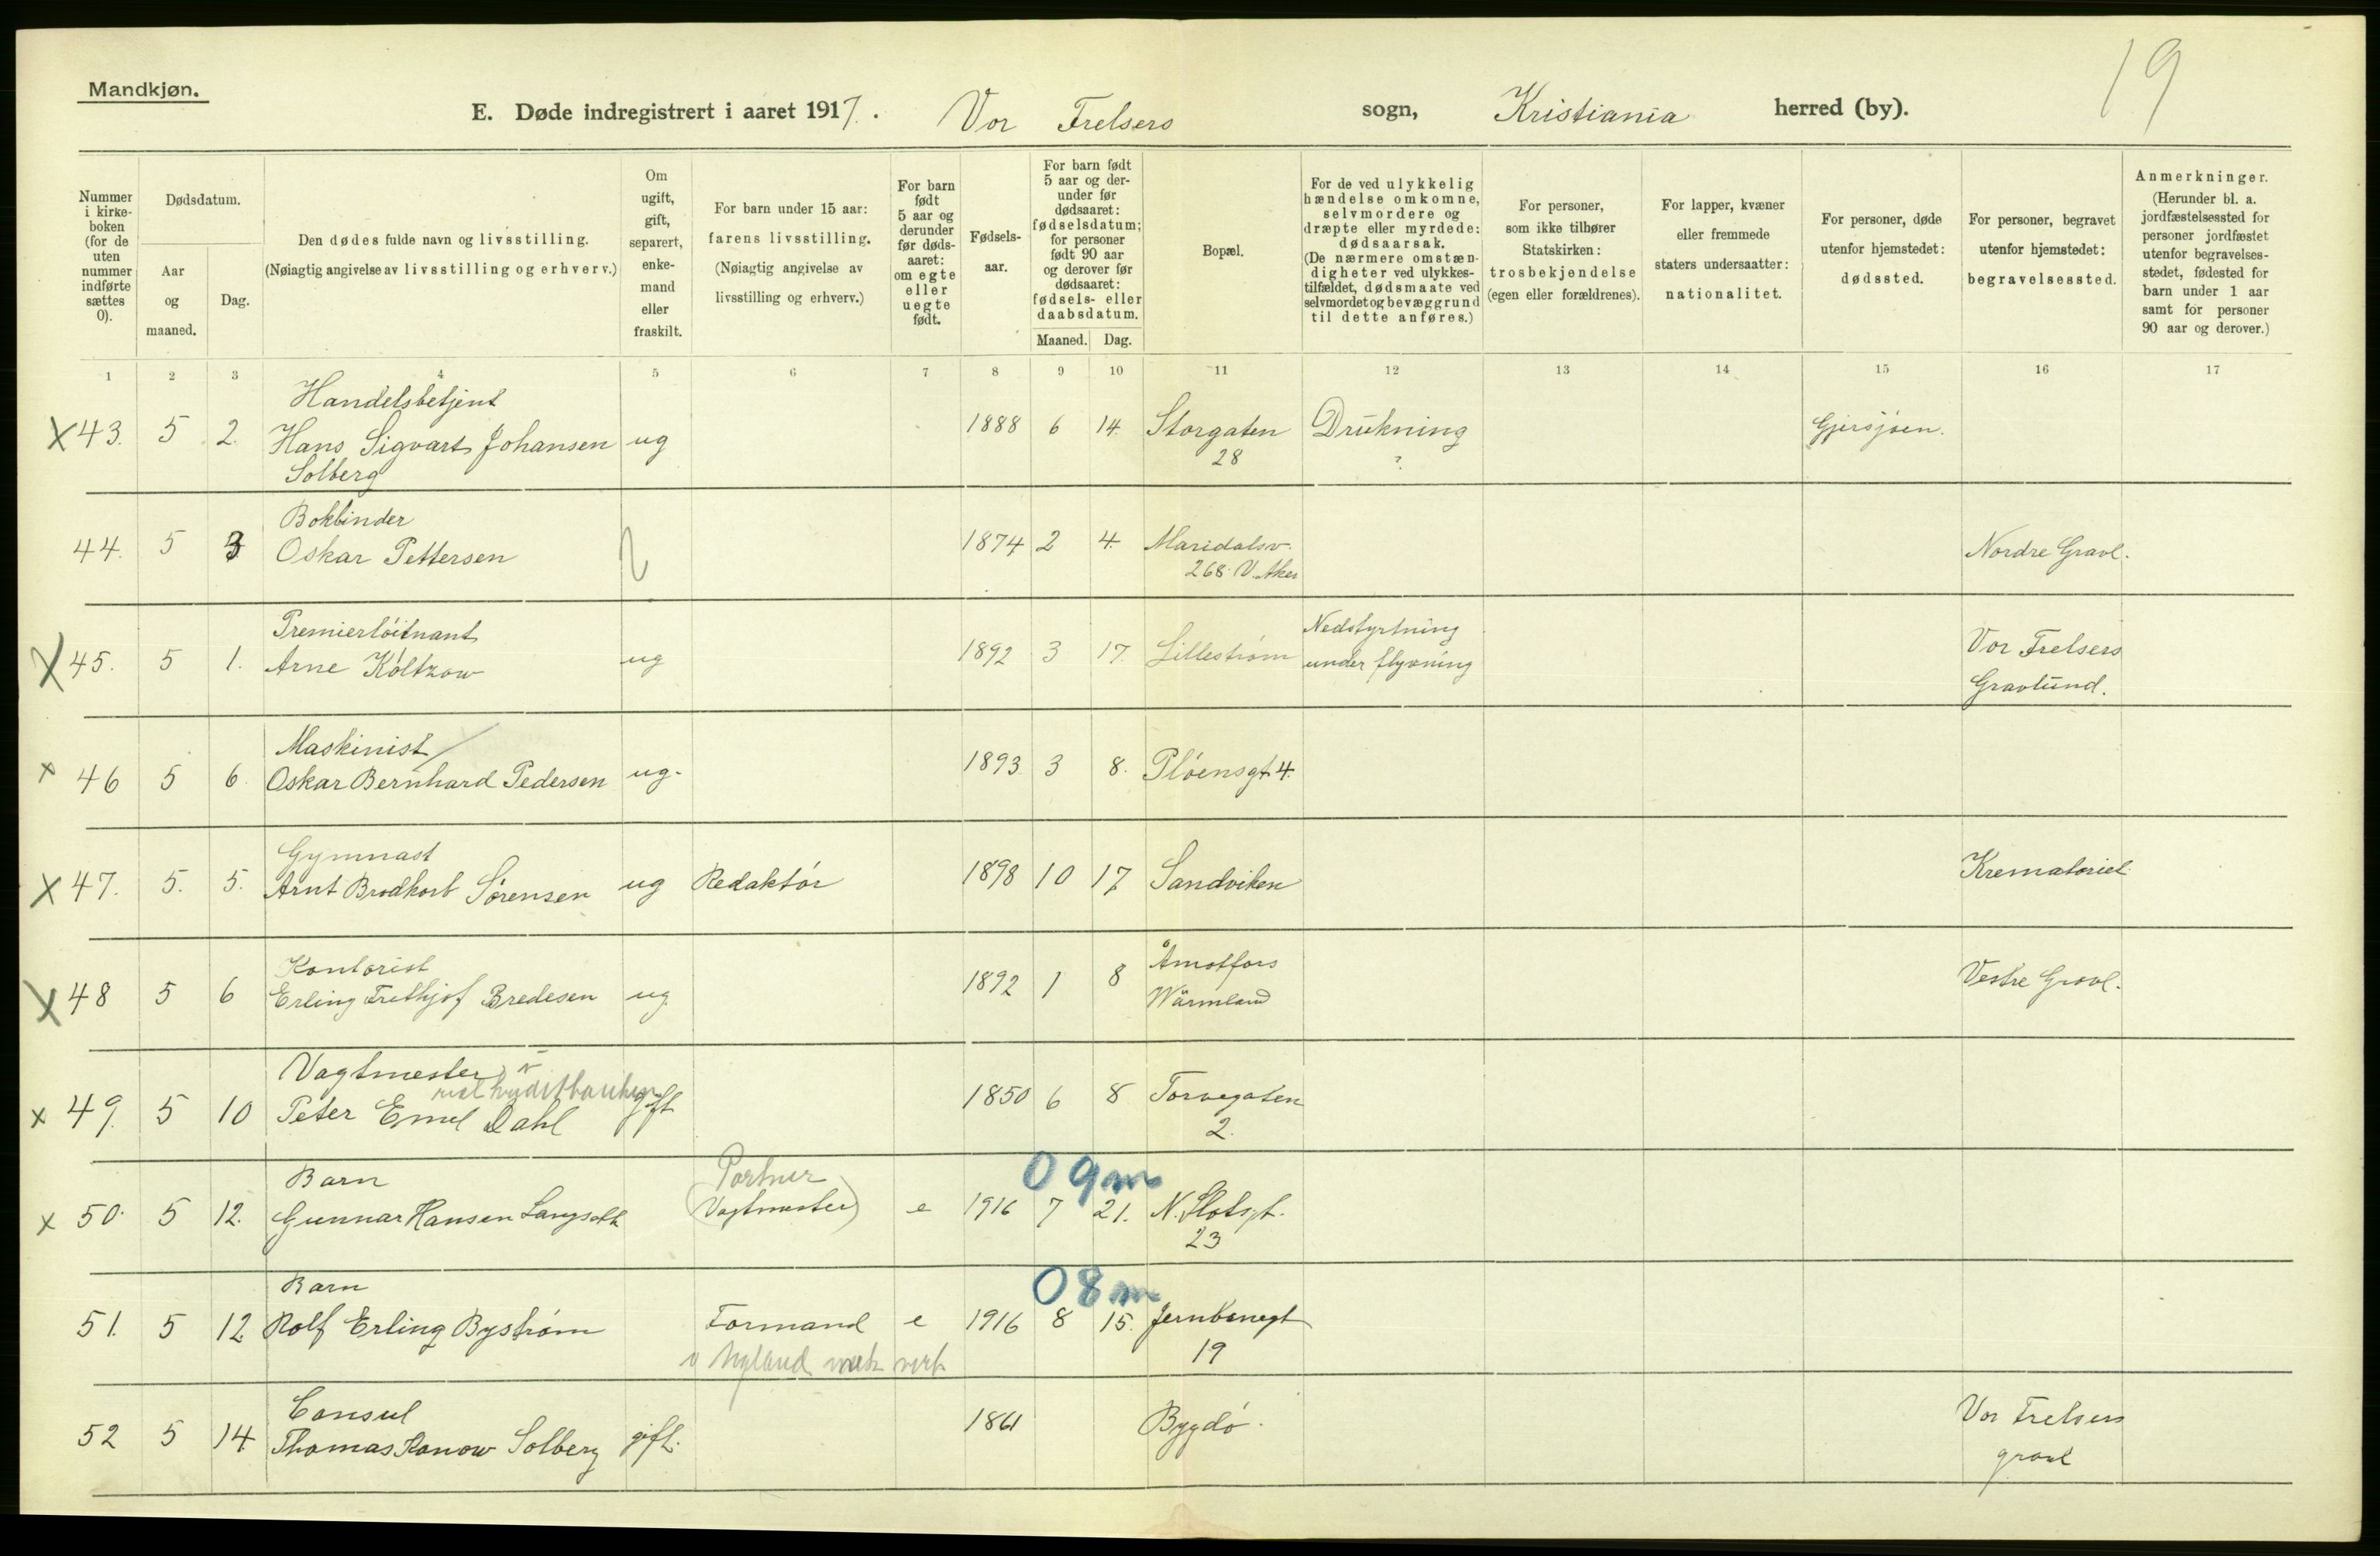 19
Mandkjøn.
E. Døde indregistrert i aaret 1917. Vor Frelsers sogn, Kristiania herred (by).
Nummer i kirke-boken (for de uten nummer indførte sættes 0).
Dødsdatum.
Aar og maaned.
Dag.
Den dødes fulde navn og livsstilling.
(Nøiagtig angivelse av livsstilling og erhverv.)
Om ugift, gift, separert, enke-mand eller fraskilt.
For barn under 15 aar: farens livsstilling.
(Nøiagtig angivelse av livsstilling og erhverv.)
For barn født 5 aar og derunder før døds-aaret: om egte eller uegte født.
Fødsels-aar.
For barn født 5 aar og der-under før dødsaaret: fødselsdatum; for personer født 90 aar og derover før dødsaaret: fødsels- eller daabsdatum.
Maaned. Dag.
Bopæl.
For de ved ulykkelig hændelse omkomne, selvmordere og dræpte eller myrdede: dødsaarsak.
(De nærmere omstæn-digheter ved ulykkes-tilfældet, dødsmaate ved selvmordet og bevæggrund til dette anføres.)
For personer, som ikke tilhører Statskirken: trosbekjendelse (egen eller forældrenes).
For lapper, kvæner eller fremmede staters undersaatter: nationalitet.
For personer, døde utenfor hjemstedet: dødssted.
For personer, begravet utenfor hjemstedet: begravelsessted.
Anmerkninger.
(Herunder bl. a. jordfæstelsessted for personer jordfæstet utenfor begravelses-stedet, fødested for barn under 1 aar samt for personer 90 aar og derover.)
1 2 3 4 5 6 7 8 9 10 11 12 13 14 15 16 17
Handelsbetjent
X 43. 5 2. Hans Sigvart Johansen ug 1888 6 14. Storgaten Drukning Gjersjøen.
Solberg 28 ?
Bokbinder
44. 5 3 Oskar Pettersen 1874 2 4. Maridalsv. Nordre Gravl.
268 V. Aker
Premierløitnant Nedstyrtning
X 45. 5 1. Arne Køltzow ug 1892 3 17. Lillestrøm under flyvning Vor Frelsers
Gravlund.
Maskinist
x 46 5 6. Oskar Bernhard Pedersen ug. 1893 3 8. Pløensgt. 4.
Gymnast
X 47. 5. 5. Arnt Brodkorb Sørensen ug Redaktør 1898 10 17 Sandviken Krematoriet.
Kontorist Åmotfors
X 48 5 6 Erling Frithjof Bredesen ug 1892 1 8 Wärmland Vestre Gravl.
Vagtmester v
x 49. 5 10 Peter Emil Dahl gift 1850 6 8 Torvegaten
2.
Barn Portner 0 9 m
x 50. 5 12. Gunnar Hansen Langseth (Vagtmester) e 1916 7 21. N. Slotsgt.
23
Barn 0 8 m
51. 5 12 Rolf Erling Bystrøm Formand e 1916 8 15. Jernbanegt
v Nyland mek verk 19
Consul
52 5 14. Thomas Ranow Solberg gift. 1861 Bygdø. Vor Frelsers
gravl